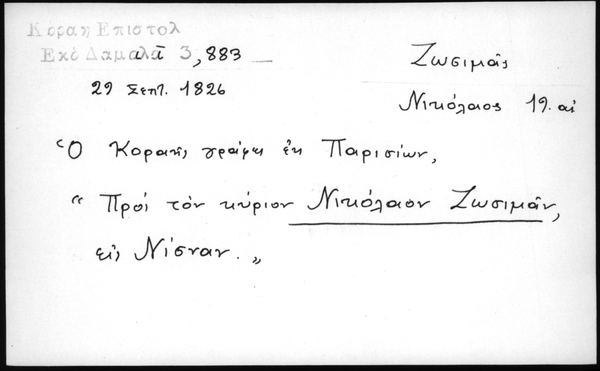 Κοραη Επιστολ
Εκδ Δαμαλᾶ 3, 883
29 Σεπτ. 1826
Ζωσιμᾶς
Νικόλαος 19. αἰ
Ὁ Κοραῆς γράφει ἐκ Παρισίων,
“ Πρὸς τὸν κύριον Νικόλαον Ζωσιμᾶν,
εἰς Νίσναν. „